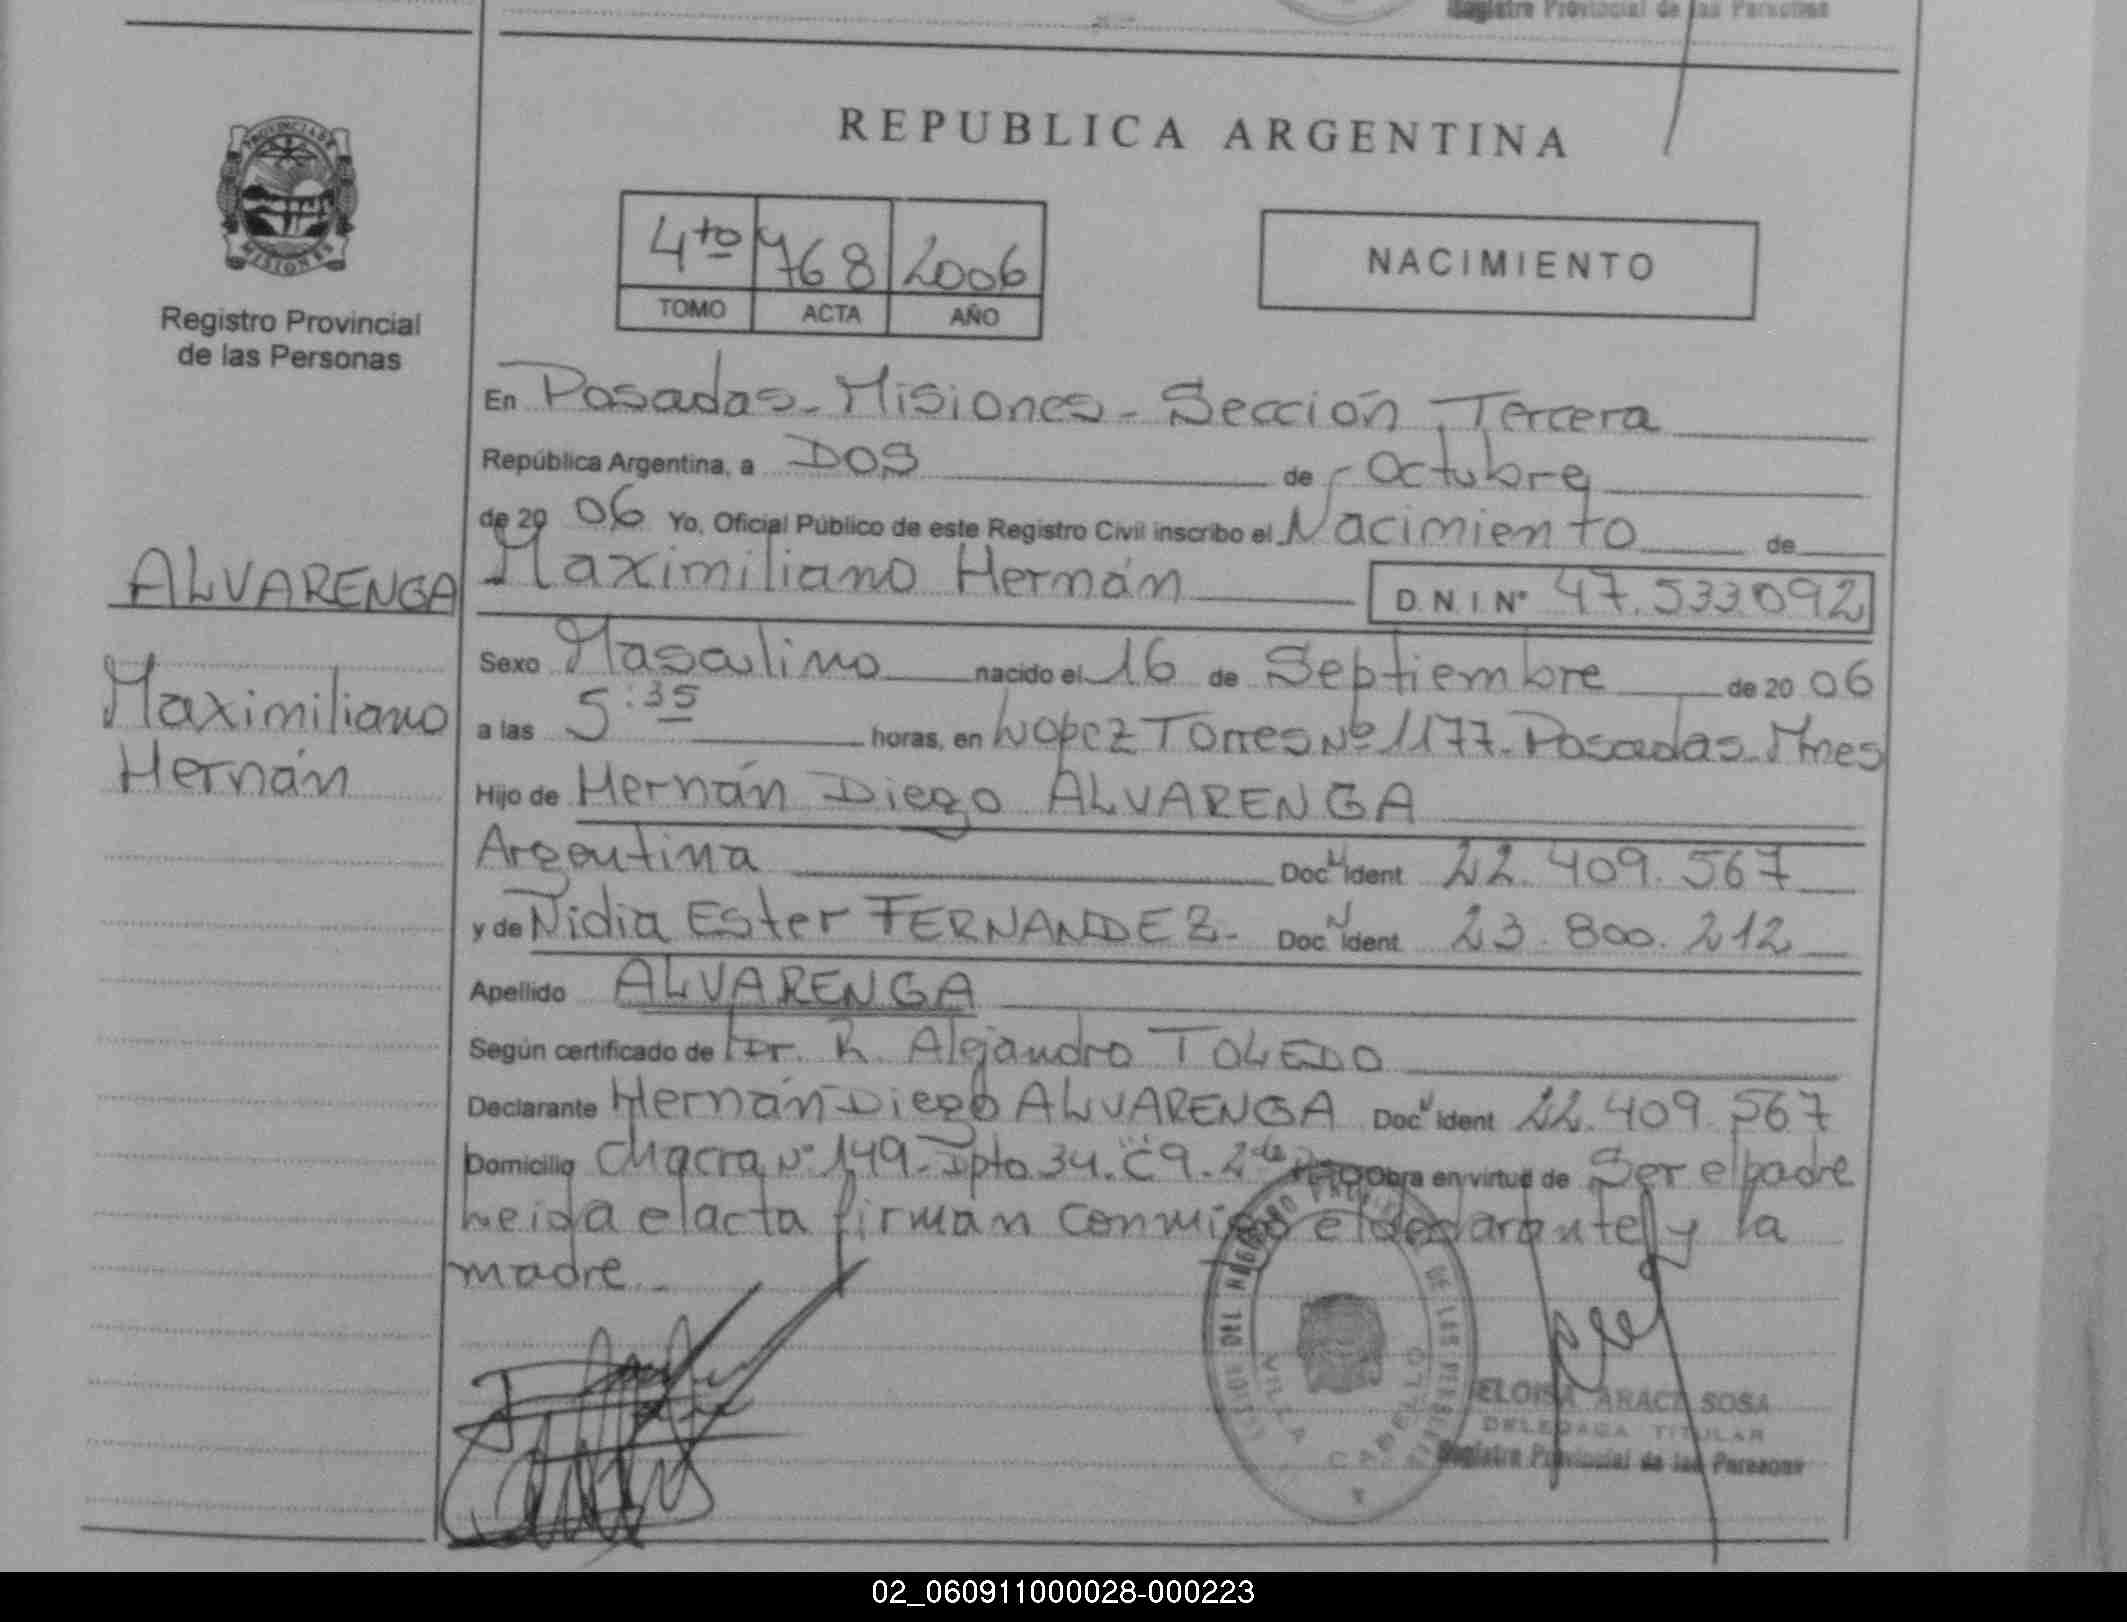 Registro Provincial de las Personas
REPUBLICA ARGENTINA
PROVINCIA DE
MISIONES
Registro Provincial
de las Personas
4to 768 2006
TOMO ACTA AÑO
NACIMIENTO
En Posadas - Misiones - Sección Tercera
República Argentina, a DOS de Octubre
de 20 06 Yo, Oficial Público de este Registro Civil inscribo el Nacimiento de
ALVARENGA
Maximiliano Hernán
Maximiliano Hernán D.N.I. N° 47.533.092
Sexo Masculino nacido el 16 de Septiembre de 20 06
a las 5:35 horas, en Lopez Torres Nº 1177 - Posadas - Mnes
Hijo de Hernán Diego ALVARENGA
Argentina Doc. N Ident 22.409.567
y de Nidia Ester FERNANDEZ - Doc. N Ident 23.800.212
Apellido ALVARENGA
Según certificado de Dr. R. Alejandro TOLEDO
Declarante Hernán Diego ALVARENGA Doc N Ident 22.409.567
Domicilio Chacra N° 149 - Dpto 34. "C" 9 - Obra en virtud de Ser el padre
Leida el acta firman conmigo el declarante y la
madre
VILLA CABELLO
ELOISA ARACI SOSA
DELEGADA TITULAR
Registro Provincial de las Personas
02_060911000028-000223